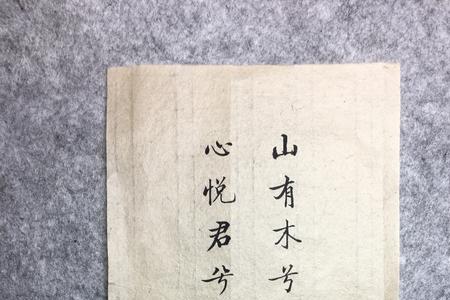 山有木兮
心悦君兮